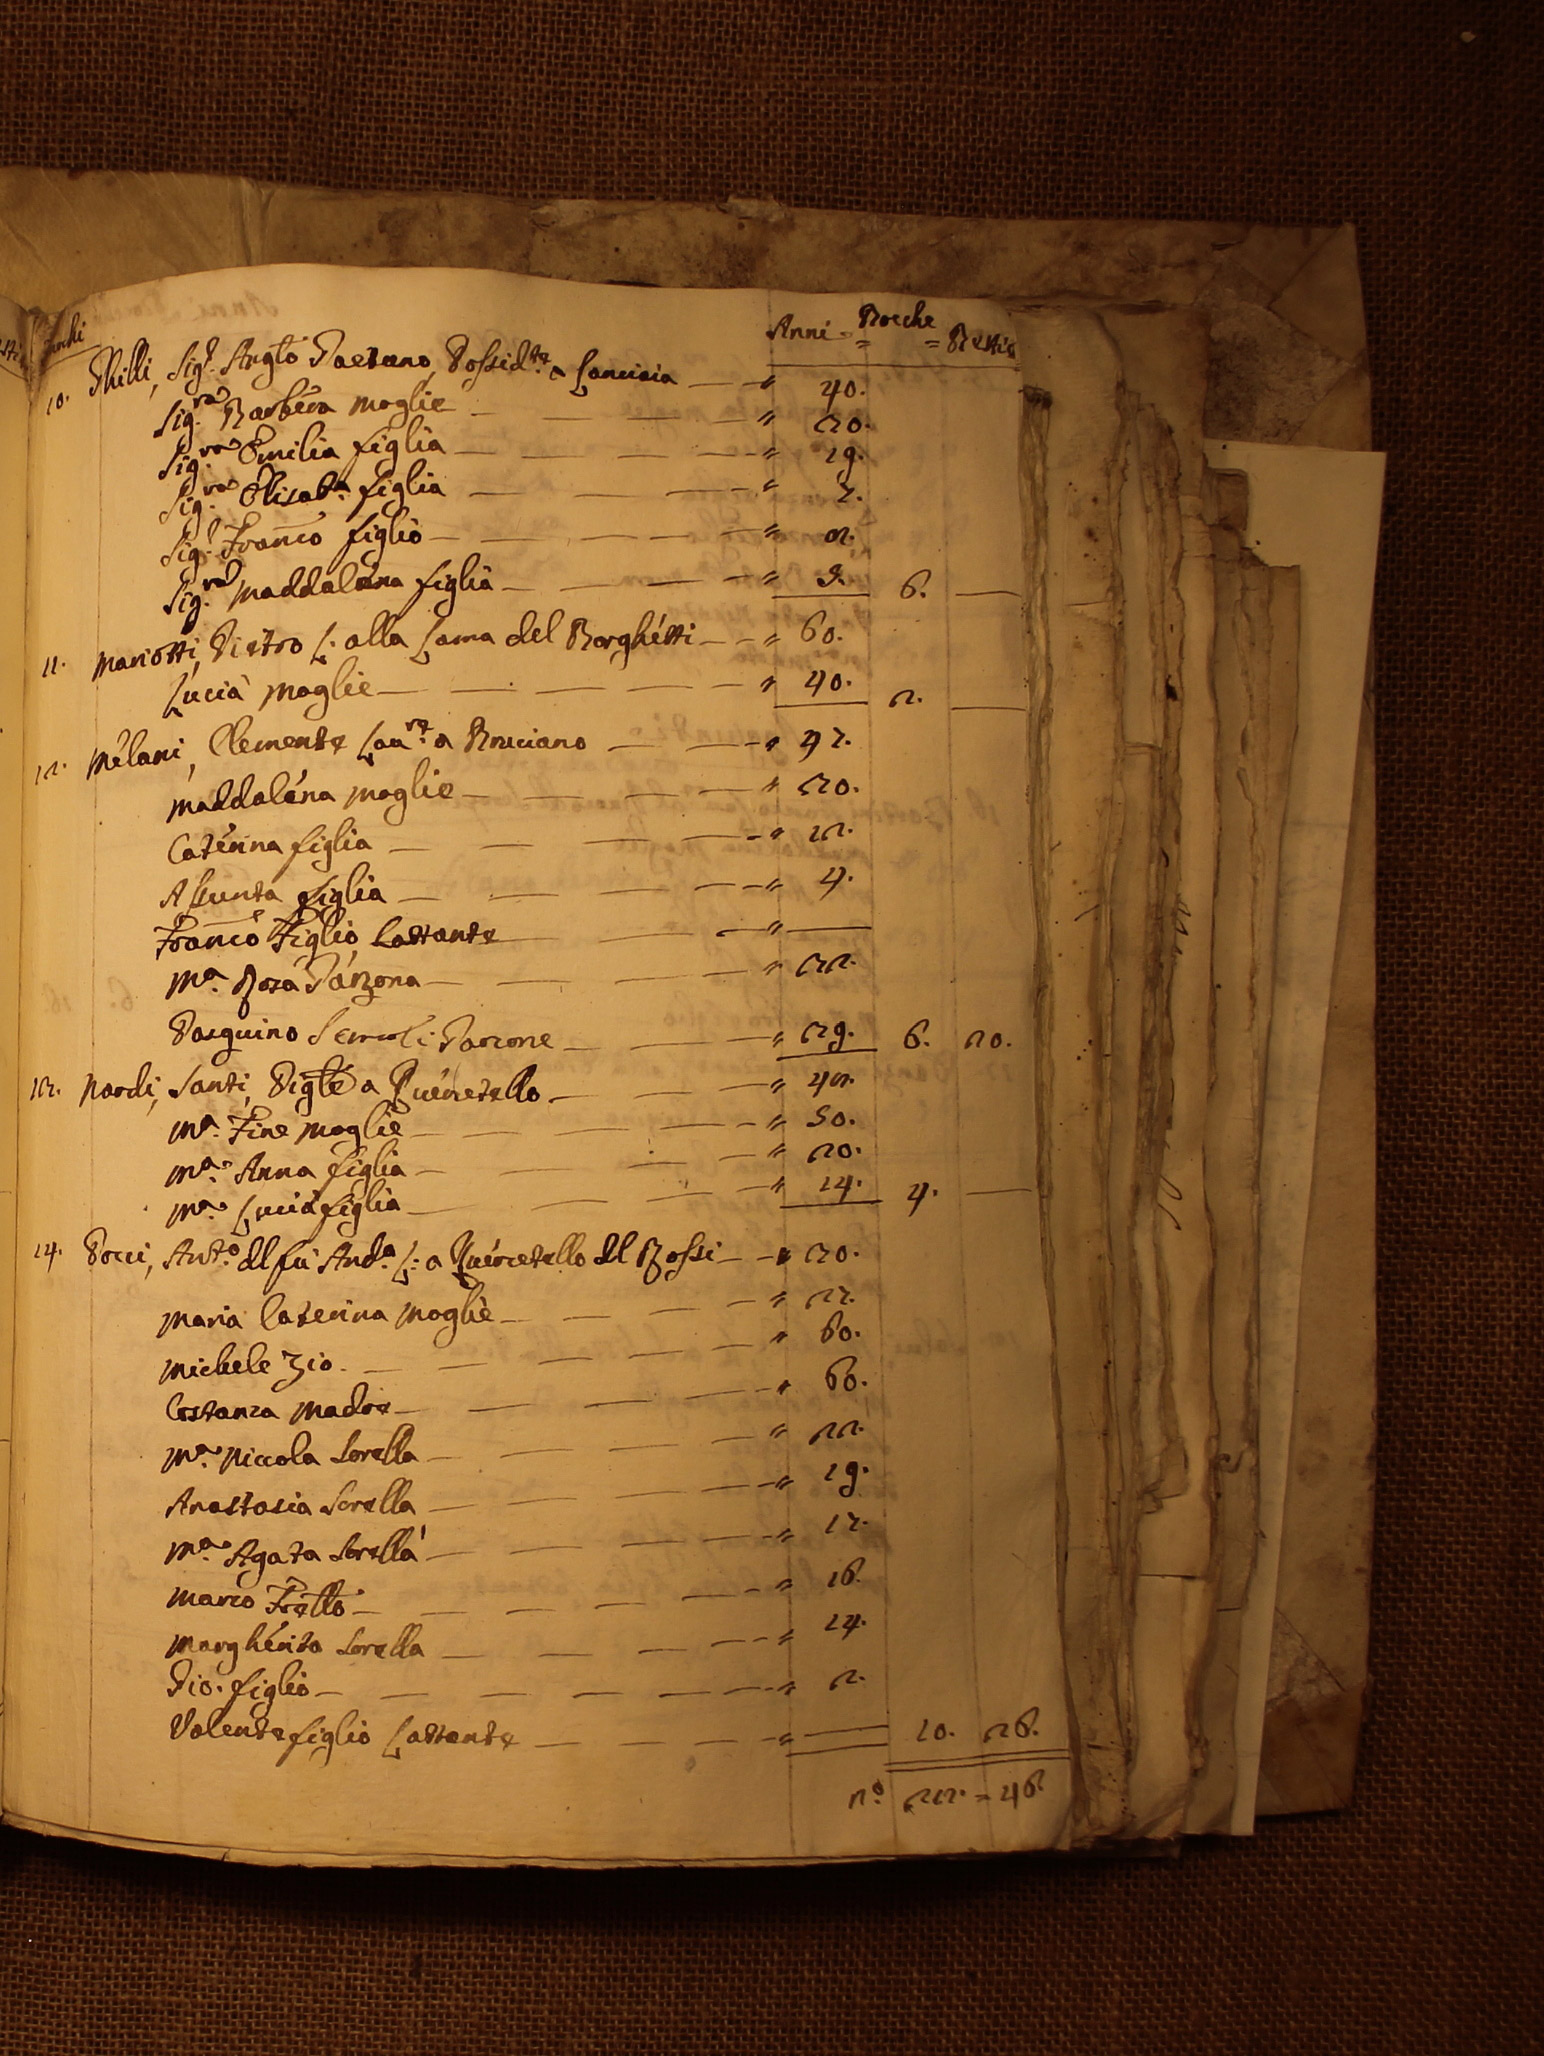 Fuochi Anni = Bocche = Bestie
10. Ghilli, Sig.r Anglo Gaetano, Possid.te a Lanciaia — " 40.
Sig.ra Barbera moglie — " 30.
Sig.ra Emilia figlia — " 19.
Sig.ra Elisab.a figlia — " 7.
Sig.r Franco figlio — " 2.
Sig.ra Maddalena figlia — " 3. 6. —
11. Mariotti, Pietro L: alla Lama del Borghetti — " 60.
Lucia moglie — " 40. 2. —
12. Melani, Clemente Lau.re a Bruciano — " 47.
Maddalena moglie — " 30.
Caterina figlia — " 12.
Assunta figlia — " 4.
Franco Figlio Lattante — " —
M.a Rosa Garzona — " 22.
Pasquino Garzone — " 29. 6. 20.
13. Nardi, Santi, Pigle a Quercetello — " 42.
M.a Fine moglie — " 50.
M.a Anna figlia — " 20.
M.a Lucia figlia — " 14. 4. —
14. Pocci, Ant.o del fu And.a L: a Quercetello del Rossi — " 30.
Maria Caterina moglie — " 27.
Michele Zio. — " 60.
Costanza Madre — " 60.
M.a Niccola Sorella — " 22.
Anastasia Sorella — " 19.
M.a Agata Sorella — " 17.
Marco Frello — " 16.
Margherita Sorella — " 14.
Gio. figlio — " 2.
Valente figlio Lattante — " — 10. 26.
n.o = 46.